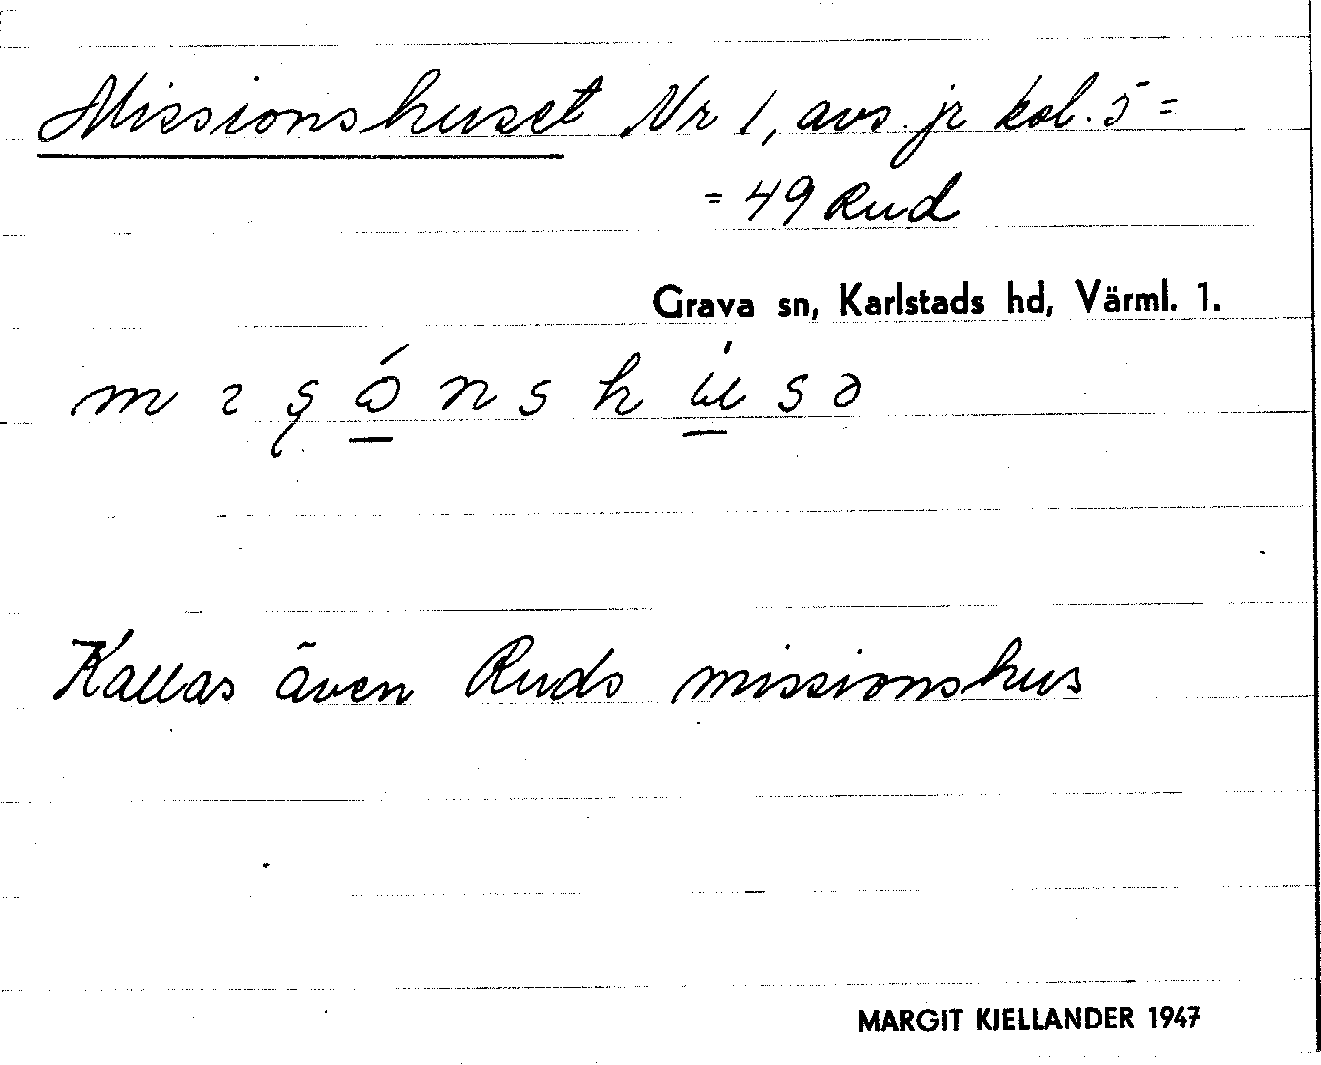 Missionshuset Nr 1, avs. jr kol. 5 =
= 49 Rud
Grava sn, Karlstads hd, Värml. 1.
m ɿ ş ó̲ n s h ú̲ s ə
Kallas även Ruds missionshus
MARGIT KJELLANDER 1947